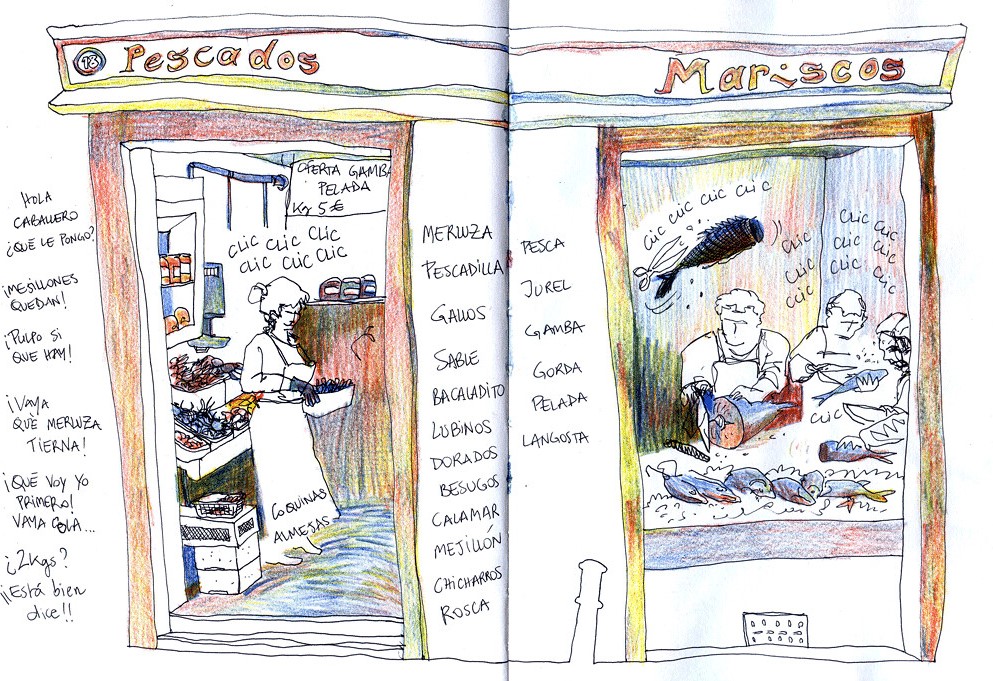 13 Pescados
Mariscos
HOLA
CABALLERO
¿QUÉ LE PONGO?
¡MEJILLONES
QUEDAN!
¡PULPO SI
QUE HAY!
¡VAYA
QUÉ MERLUZA
TIERNA!
¡QUÉ VOY YO
PRIMERO!
VAYA COLA...
¿2Kgs?
¡¡Está bien
dice!!
OFERTA GAMBA
PELADA
Kg 5€
CLIC CLIC CLIC
CLIC CLIC CLIC
COQUINAS
ALMEJAS
MERLUZA
PESCADILLA
GALLOS
SABLE
BACALADITO
LUBINOS
DORADOS
BESUGOS
CALAMAR
MEJILLÓN
CHICHARROS
ROSCA
PESCA
JUREL
GAMBA
GORDA
PELADA
LANGOSTA
CLIC CLIC CLIC CLIC
CLIC
CLIC
CLIC
CLIC CLIC
CLIC CLIC
CLIC CLIC
CLIC